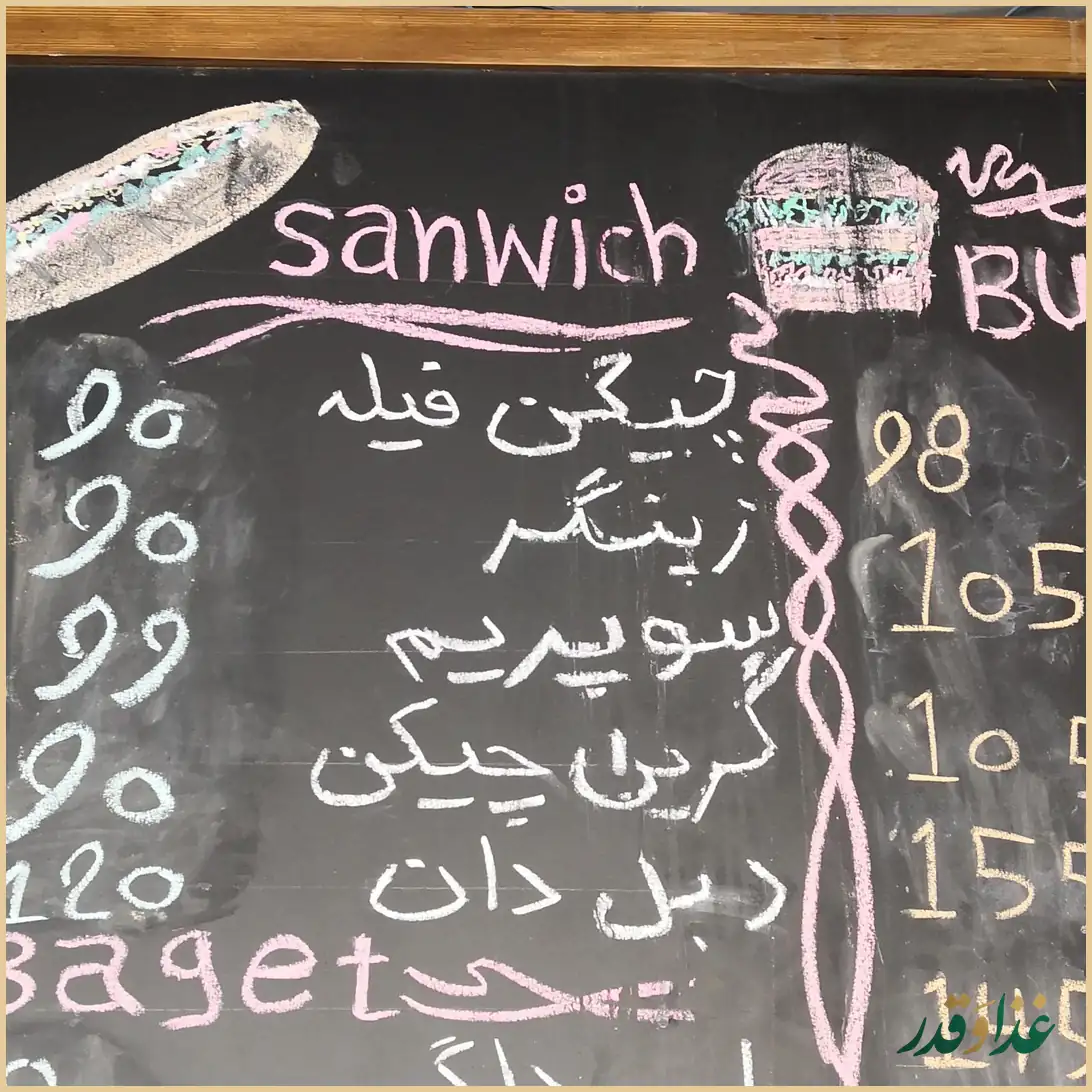 sanwich
چیگن فیله 90
زینگر 90
سوپریم 99
گریل چیکن 90
دبل دان 120
Baget
BU
98
105
10
155
145
غذا و قدر